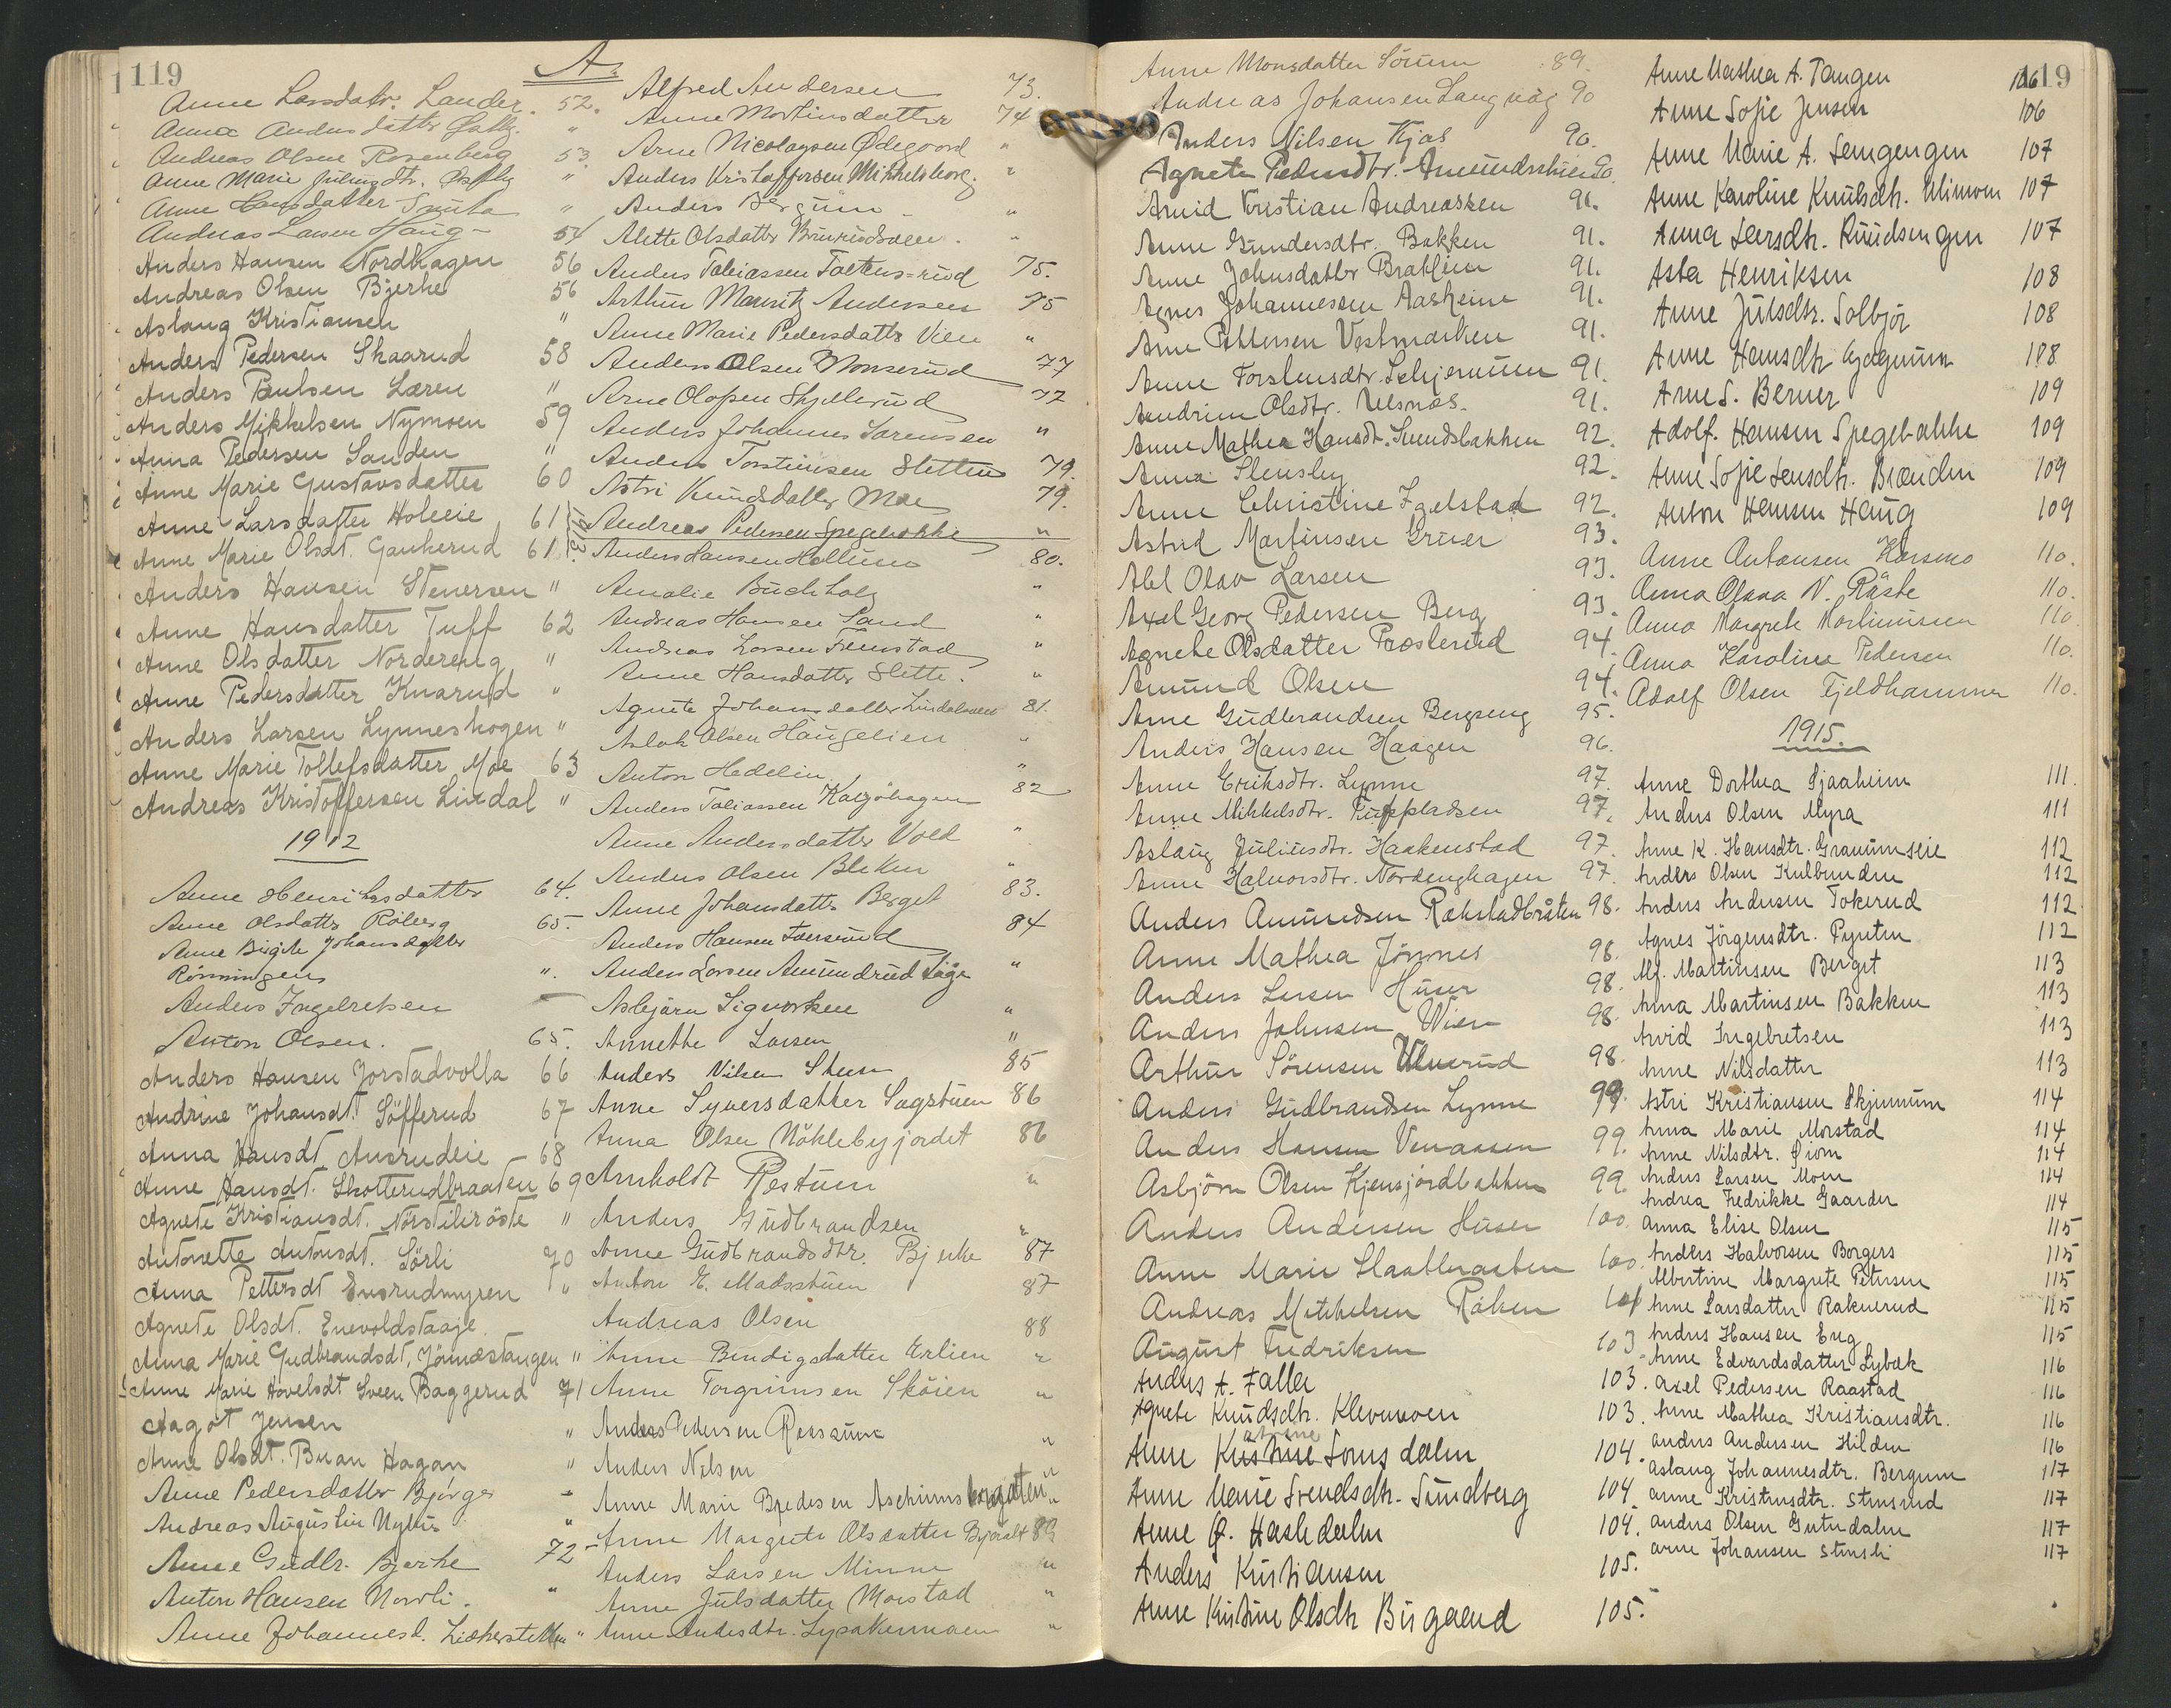 119
A.
Anne Larsdatr. Lander. 52.
Anna Andersdatter "
Andreas Olsen Rosenberg 53.
Anne Marie Juliusdtr. "
Anne Hansdatter "
Andreas Larsen Haug 54
Anders Hansen Nordhagen 56
Andreas Olsen Bjerke 56
Aslaug Kristiansen "
Anders Pedersen Skaarud 58
Anders Paulsen Læren "
Anders Mikkelsen Nymoen 59
Anna Pedersen Sanden "
Anne Marie Gustavsdatter 60
Anne Larsdatter 61
Anne Marie Olsdt. Gaukerud 61.
Anders Hansen Stenersen "
Anne Hansdatter Tuff 62
Anne Olsdatter Nordereng "
Anne Pedersdatter Knarud "
Anders Larsen Lynneshogen "
Anne Marie Tollefsdatter Moe 63
Andreas Kristoffersen Lindal "
1912
Anne Henriksdatter 64.
Anne Olsdatter Röberg 65.
Anne Birgite Johansdatter
Rönningen ".
Anders Ingebretsen
Anton Olsen. 65.
Anders Hansen Jorstadvolla 66
Andrine Johansdt. Söfferud 67
Anna Hansdt. Ausrudeie 68
Anne Hansdt. Skotterudbraaten 69
Agnete Kristiansdt. "
Antonette Antonsdt. Sörli 70
Anna Pettersdt Ensrudmyren "
Agnete Olsdt. Enevoldstaaje.
Anna Marie Gudbrandsdt, Jönnæstangen "
Anne Marie Hovelsdt Sveen Baggerud 71
Aagot Jensen "
Anne Olsdt. Buan Hagan "
Anne Pedersdatter Bjørge "
Andreas Augustin "
Anne Gudbr. Bjerke 72
Anton Hansen Nordli. "
Anne Johannesd. "
Alfred Andersen 73.
Anne Mortinsdatter 74
Arne Nicolaysen Ødegoord "
Anders Kristoffersen Mikkelsborg. "
Anders Bergum "
Alette Olsdatter "
Anders Tobiassen 75.
Arthur Mauritz Andersen 75
Anne Marie Pedersdatter Vien "
Anders Olsen Monserud 77
Arne Olafsen Skjellerud 77
Anders Johannes Sørensen "
Anders Torstensen Sletten 79.
Astri Knudsdatter Moe 79.
1913. Andreas Pedersen Spegebakke "
Anders Hansen Hollum 80.
Amalie Buchholz "
Andreas Hansen Sand "
Andreas Larsen Fremstad "
Anne Hansdatter Slette. "
Agnete Johansdatter 81.
Aslak Olsen Haugelien "
Anton Hedelin "
Anders Tobiassen 82
Anne Andersdatter Vold "
Anders Olsen Bleken "
Anne Johansdatter Berget 83.
Anders Hansen 84
Anders Larsen Amundrud "
Asbjørn Sigvartsen "
Annette Larsen "
Anders Nilsen Steen 85
Anne Syversdatter Sagstuen 86
Anna Olsen Nökleby jordet 86
Arnholdt Restum "
Anders Gudbrandsen "
Anne Gudbrandsdtr. Bjerke 87
Anton E. Madsstuen 87
Andreas Olsen 88
Anne Bendigsdatter "
Anne Torgrimsen Sköien "
Anders Pedersen "
Anders Nilsen "
Anne Marie Bredesen "
Anne Margrete Olsdatter 89
Anders Larsen Minne "
Anne Julsdatter Morstad "
Anne Andersdtr. Lysakermoen "
Anne Monsdatter Sörum 89.
Andreas Johansen Langvåg 90
Anders Nilsen Kjos 90.
Agnete Pedersdtr. 90.
Arvid Kristian Andreassen 91.
Anne Gundersdtr. Bakken 91.
Anne Johnsdatter 91.
Agnes Johannessen Aasheim 91.
Arne Pettersen Vestmarken 91.
Anne Torstensdtr. 91.
Andrine Olsdtr. Ulsnæs. 91.
Anne Mathea Hansdt. Svendsbakken 92.
Anna Stensby 92.
Anne Christine Igelstad 92.
Astrid Martinsen Gruer 93.
Abel Olav Larsen 93.
Axel Georg Pedersen Berg 93.
Agnethe Olsdatter Prosterud 94.
Amund Olsen 94.
Arne Gudbrandsen Bergseng 95.
Anders Hansen Haagen 96.
Anne Eriksdtr. Lynne 97.
Anne Mikkelsdtr. 97.
Aslaug Juliusdtr. Haakenstad 97.
Anne Halvorsdtr. Nordenghagen 97.
Anders Amundsen Rakstadbråten 98.
Anne Mathea Jönnes 98.
Anders Larsen Huser 98.
Anders Johnsen Wien 98.
Arthur Sörensen Ulverud 98.
Anders Gudbrandsen Lynne 99.
Anders Hansen 99.
Asbjörn Olsen Kjensjordbakken 99
Anders Andersen Huser 100.
Anne Marie Slaatbraaten 100.
Andreas Mikkelsen Råken 101
August Fredriksen 103.
Anders A. Faller 103.
Agnete Knudsdtr. Klevmoen 103.
atrine
Anne Kristine Somsdalen 104.
Anne Marie Svendsdtr. Sundberg 104.
Anne G. Haslidalen 104.
Anders Kristiansen 105.
Anne Kristine Olsdtr 105.
119
Anne Mathea A. Tangen 106
Anne Sofie Jensen 106
Anne Marie A. Semgengen 107
Anne Karoline Knutsdtr. Ulimoen 107
Anna Larsdtr. Ruudsengen 107
Asta Henriksen 108
Anne Julsdtr. Solbjör 108
Anne Hansdtr 108
Arne S. Berner 109
Adolf. Hansen Spegebakke 109
Anne Sofie Larsdtr. Brænden 109
Anton Hansen Haug 109
Anne Antonsen Horsmo 110.
Anna Olava N. Råste 110.
Anna Margrete Martinussen 110.
Anna Karolina Pedersen 110.
Adolf Olsen Fjeldhammer 110.
1915.
Anne Dorthea Gjaaheim 111.
Anders Olsen Myra 111
Anne K. Hansdtr. Graunumseie 112
Anders Olsen Kulbunden 112
Anders Andersen Tokerud 112
Agnes Jörgensdtr. Pynten 112
Alf. Martinsen Berget 113
Anna Martinsen Bakken 113
Arvid Ingebretsen 113
Anne Nilsdatter 113
Astri Kristiansen Skjennum 114
Anna Marie Morstad 114
Anne Nilsdtr. 114
Anders Larsen Moen 114
Andrea Fredrikke Gaarder 114
Anna Elise Olsen 115
Anders Halvorsen Borgers 115
Albertine Margrete Petersen 115
Anne Larsdatter Raknerud 115
Anders Hansen Eng 115
Anne Edvardsdatter Lybæk 116
Axel Pedersen Raastad 116
Anne Mathea Kristiansdtr. 116
Anders Andersen Hilden 116
Aslaug Johannesdtr. Bergum 117
Anne Kristensdtr. Stensrud 117
Anders Olsen Guterdalen 117
Arne Johansen Stensli 117